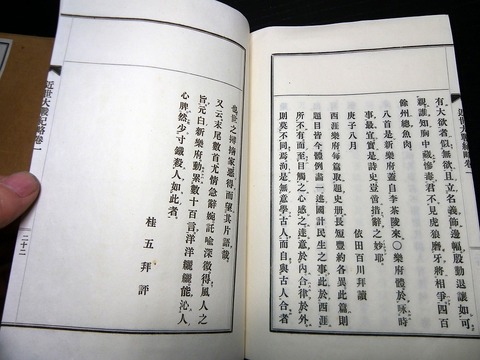 近世大戰紀略卷一
有大欲者似無欲且立名義飾邊幅殷勤退讓如可
親誰知胸中藏慘毒君不見虎狼磨牙將相爭四百
餘州總魚肉
八首是新樂府蓋自李茶陵來〇樂府體於咏時
事最宜實是詩史豈啻措辭之妙耶
庚子八月　依田百川拜讀
西涯樂府每篇取題史册長短豐約各異此篇則
題目皆今體例盡一述國計民生之事此於西涯
不同至觸之心感之達意於内合律於外
則莫不同焉洵是無意學古人而自與古人合者
也世之撦家惡得而望其片語哉
又云末尾數首尤情急辭婉託喩深微得風人之
旨元白新樂府動累數十百言洋洋纚纚能沁人
心脾然少寸鐵殺人如此者
桂五拜評
近世大戰紀略卷一
二十二